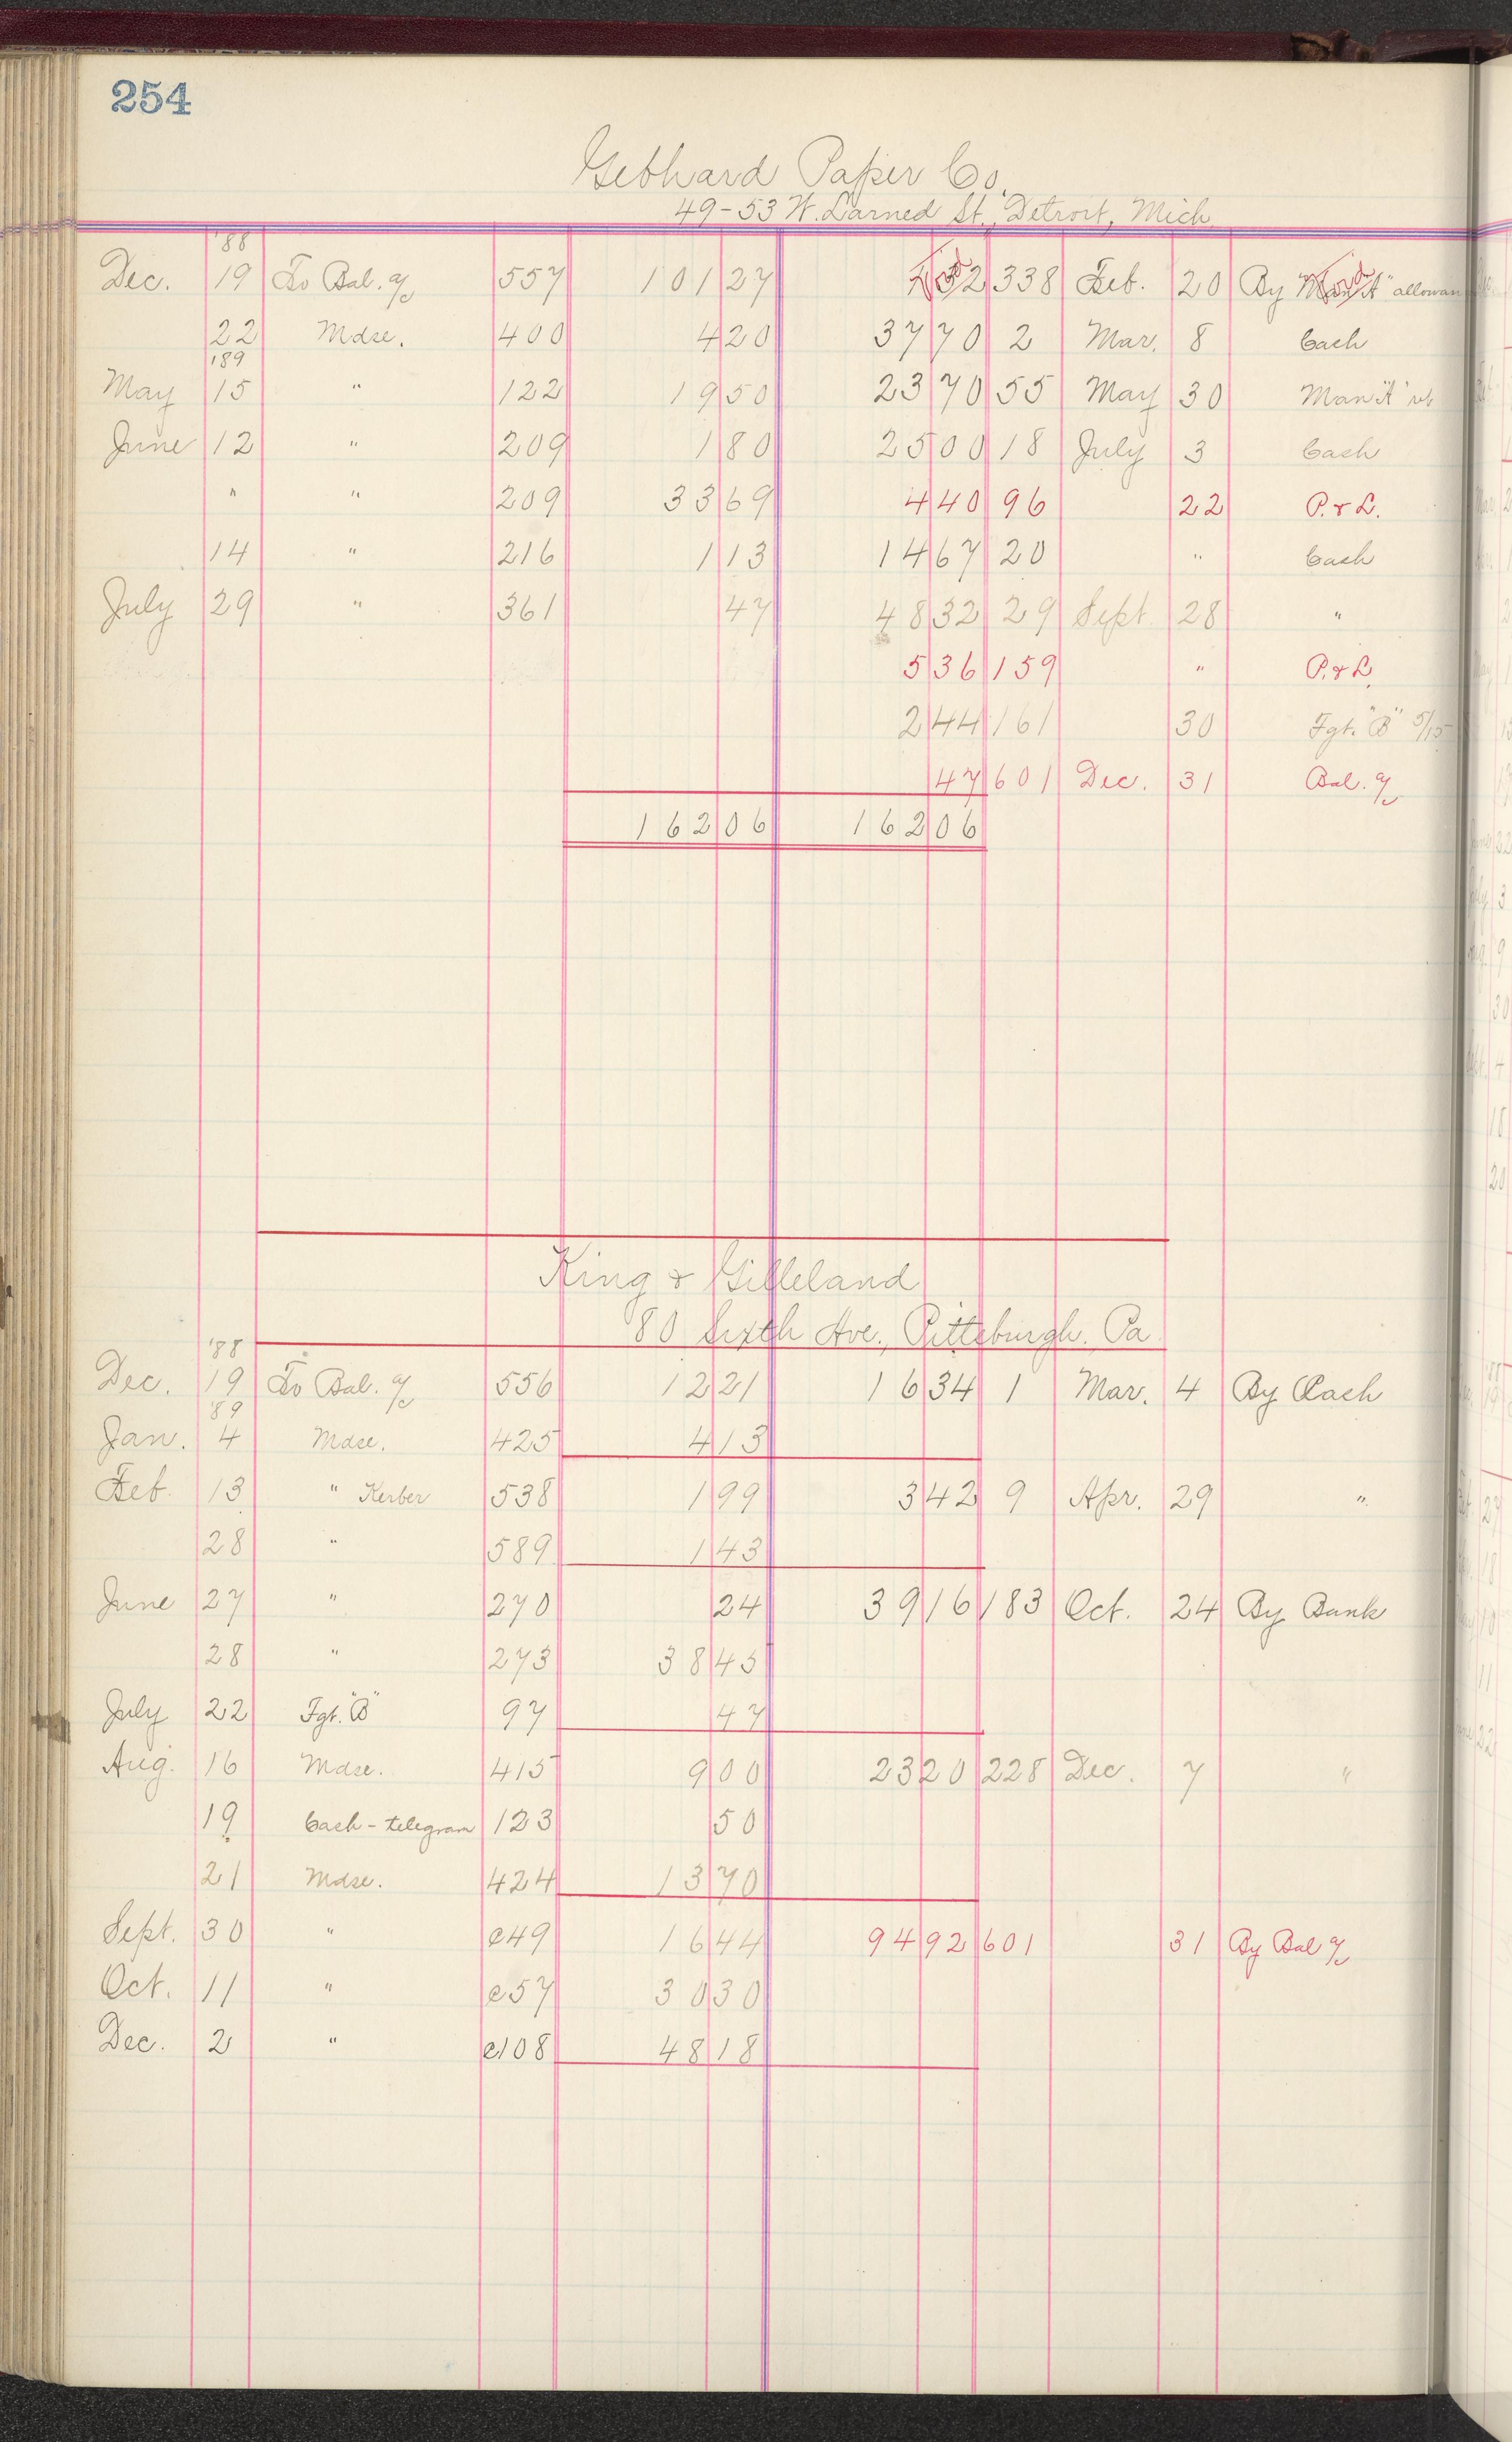 254
Gebhard Paper Co.
49-53 W. Larned St., Detroit, Mich.
'88
Dec. 19 To Bal. a/c 557 101 27 32 338 Feb. 20 By Man "A" allowan
22 Mdse. 400 4 20 37 70 2 Mar. 8 Cash
'89
May 15 " 122 19 50 23 70 55 May 30 Man "A"
June 12 " 209 1 80 25 00 18 July 3 Cash
" " 209 33 69 4 40 96 22 P. & L.
14 " 216 1 13 14 67 20 " Cash
July 29 " 361 47 48 32 29 Sept. 28 "
5 36 159 " P. & L.
2 44 161 30 Fgt. "B" 5/15
47 601 Dec. 31 Bal. a/c
162 06 162 06
King & Gilleland
80 Sixth Ave., Pittsburgh, Pa.
'88
Dec. 19 To Bal. a/c 556 12 21 16 34 1 Mar. 4 By Cash
'89
Jan. 4 Mdse. 425 4 13
Feb. 13 " Kerber 538 1 99 3 42 9 Apr. 29 "
28 " 589 1 43
June 27 " 270 24 39 16 183 Oct. 24 By Bank
28 " 273 38 45
July 22 Fgt. "B" 97 47
Aug. 16 Mdse. 415 9 00 23 20 228 Dec. 7 "
19 Cash - telegram 123 50
21 Mdse. 424 13 70
Sept. 30 " c49 16 44 94 92 601 31 By Bal a/c
Oct. 11 " c57 30 30
Dec. 2 " c108 48 18